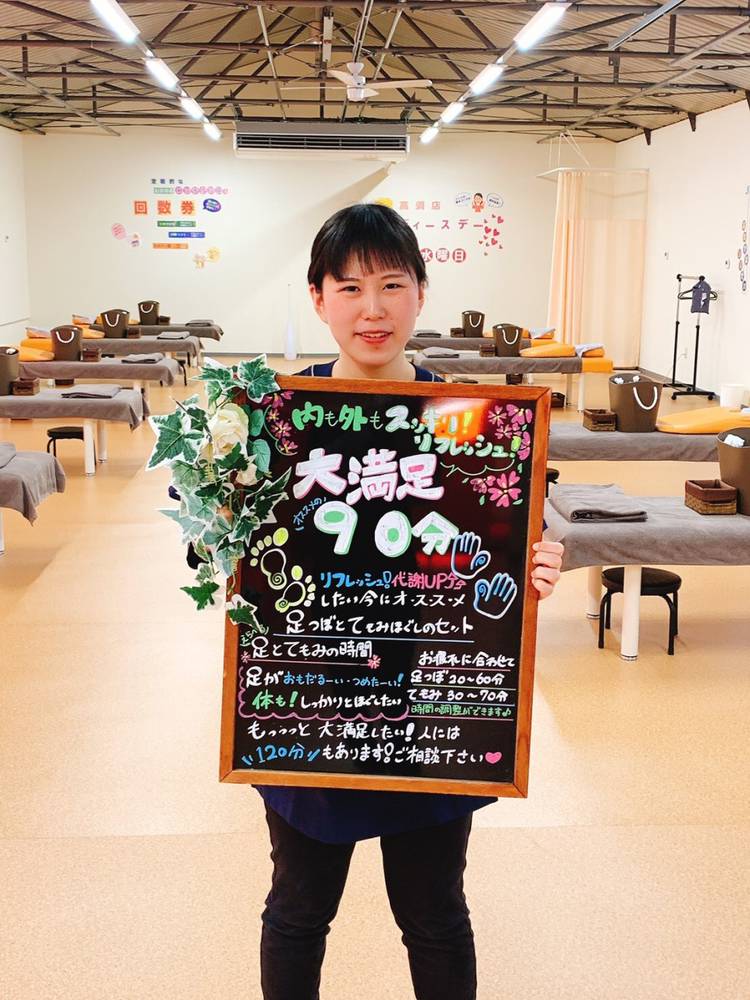 回数券
高須店
ィースデー
水曜日
内も外もスッキリ!
リフレッシュ!
大満足
オススメの
90分
リフレッシュ!代謝UP
したい今にオ・ス・ス・メ
足つぼとてもみほぐしのセット
えらべる
足とてもみの時間
足がおもだるーい・つめたーい!
体も!しっかりとほぐしたい
お疲れに合わせて
足つぼ20〜60分
てもみ30〜70分
時間の調整ができます♪
もっっっと大満足したい!人には
120分もあります!ご相談下さい